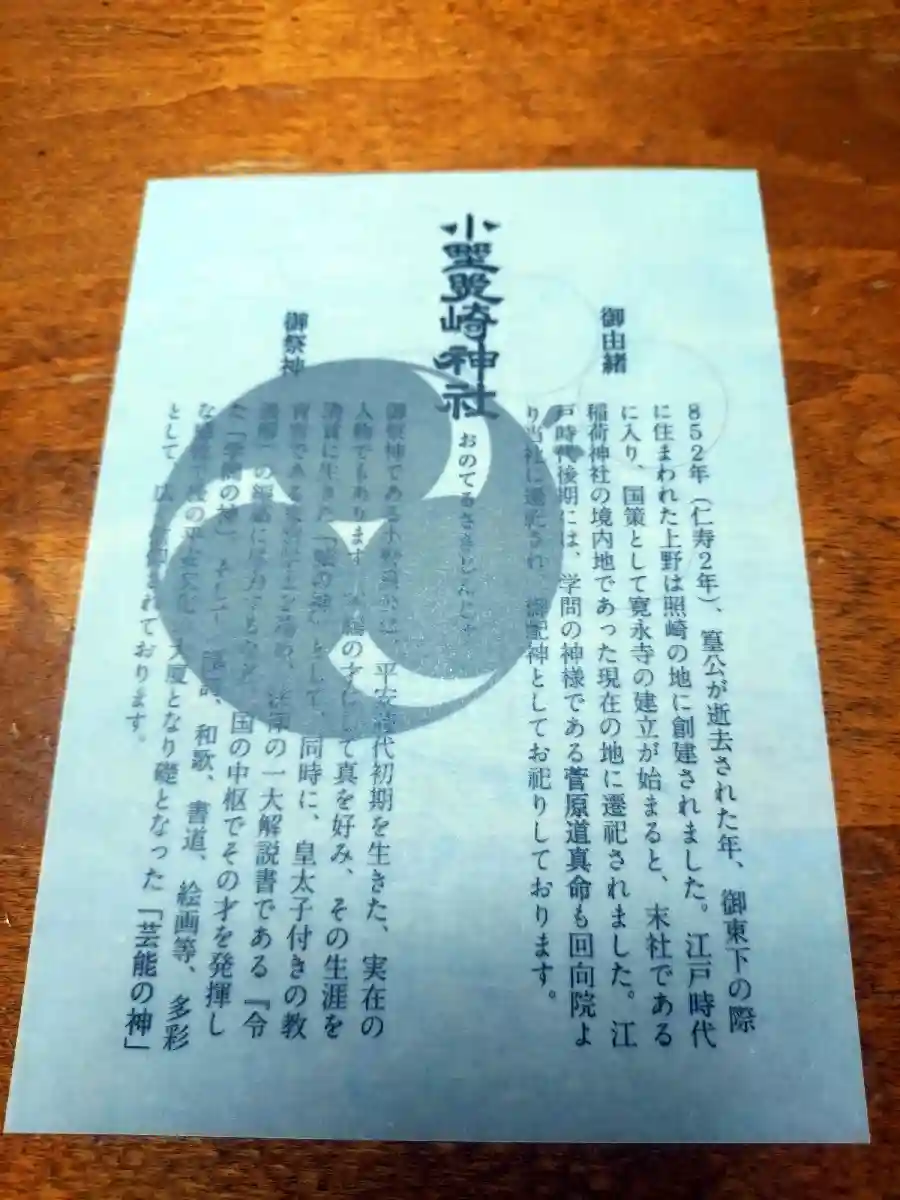 御由緒
852年（仁寿2年）、篁公が逝去された年、御東下の際
に住まわれた上野は照崎の地に創建されました。江戸時代
に入り、国策として寛永寺の建立が始まると、末社である
稲荷神社の境内地であった現在の地に遷祀されました。江
戸時代後期には、学問の神様である菅原道真命も回向院よ
り当社に遷祀され、御配神としてお祀りしております。
小野照崎神社
おのてるさきじんじゃ
御祭神
御祭神である小野篁公は、平安時代初期を生きた、実在の
人物でもあります。の才にして真を好み、その生涯を
清貧に生きたの神」として、同時に、皇太子付きの教
育官であるを務め、法律の一大解説書である『令
義解』の編纂に尽力するなど、国の中枢でその才を発揮し
た「学問の神」、そして、漢詩、和歌、書道、絵画等、多彩
なで後の平安文化の大厦となり礎となった「芸能の神」
として、広く知られております。